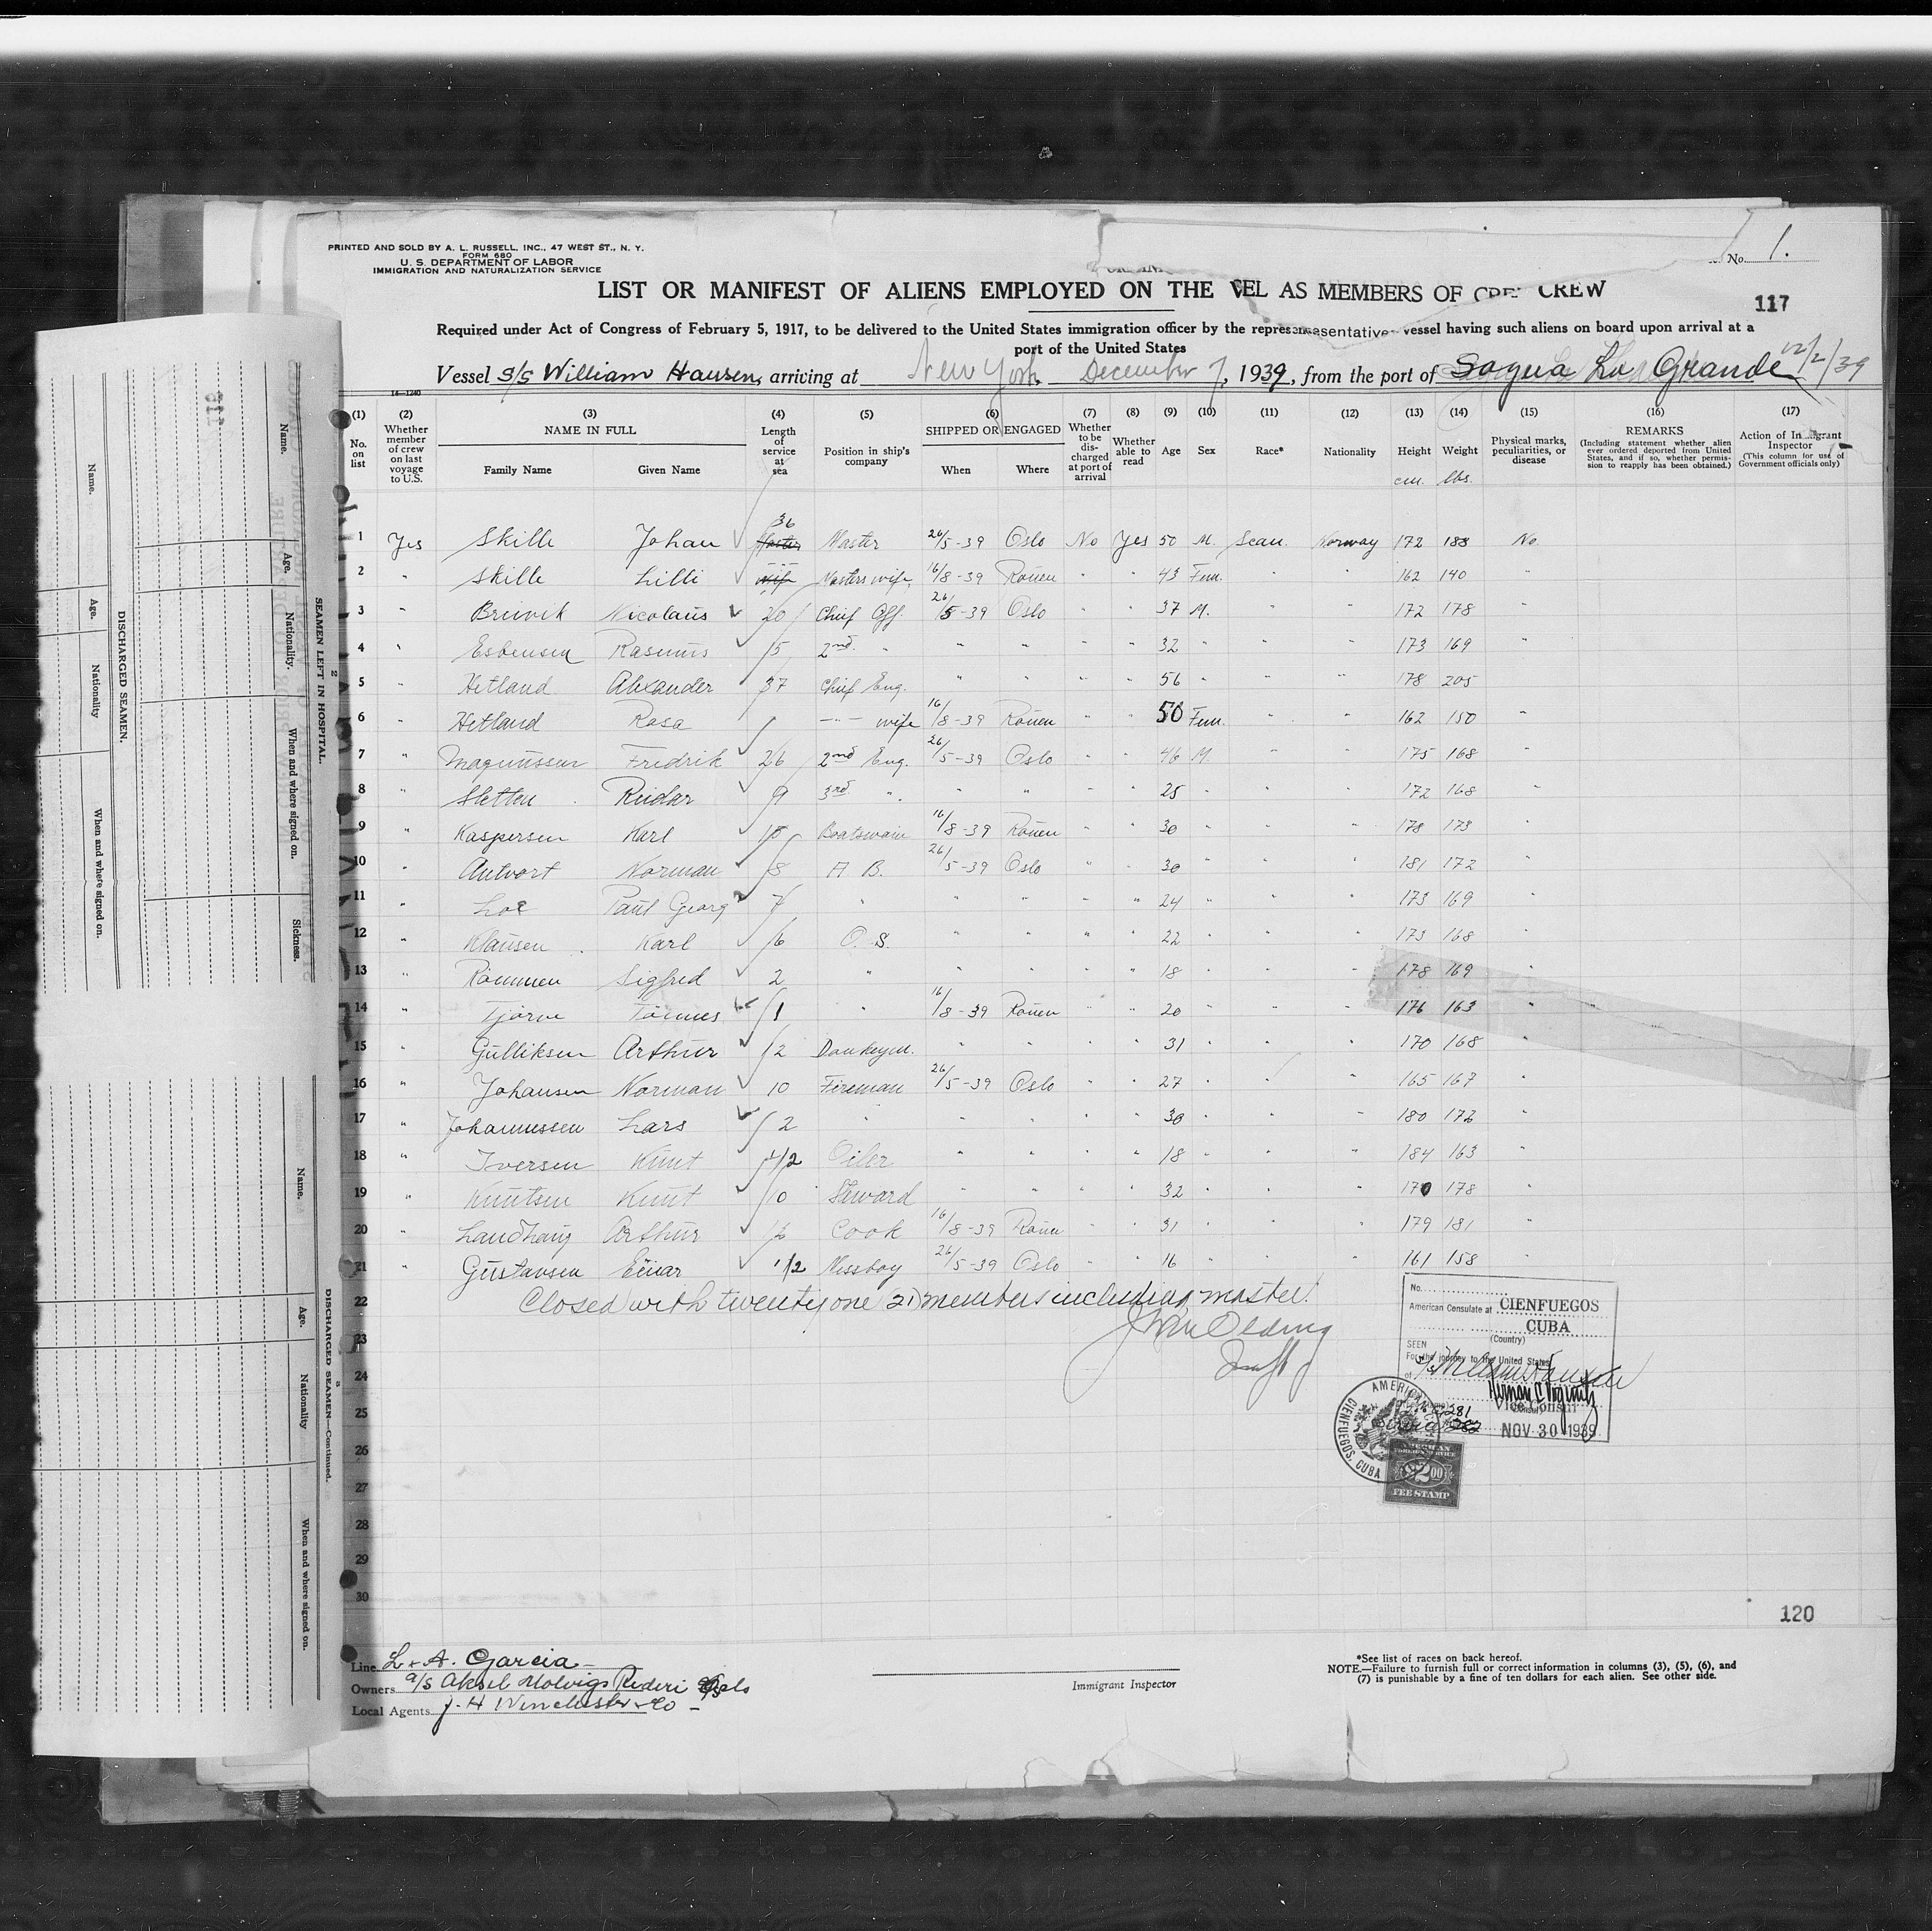 PRINTED AND SOLD BY A. L. RUSSELL, INC., 47 WEST ST., N. Y.
FORM 680
U. S. DEPARTMENT OF LABOR
IMMIGRATION AND NATURALIZATION SERVICE
No. 1.
LIST OR MANIFEST OF ALIENS EMPLOYED ON THE VEL AS MEMBERS OF CREW
117
Required under Act of Congress of February 5, 1917, to be delivered to the United States immigration officer by the representative vessel having such aliens on board upon arrival at a
port of the United States
Vessel S/S William Hansen, arriving at New York, December 7, 1939, from the port of Sagua La Grande 12/2/39
14-1240
(1) (2) (3) (4) (5) (6) (7) (8) (9) (10) (11) (12) (13) (14) (15) (16) (17)
No. on list
Whether member of crew on last voyage to U.S.
NAME IN FULL
Family Name Given Name
Length of service at sea
Position in ship's company
SHIPPED OR ENGAGED
When Where
Whether to be discharged at port of arrival
Whether able to read
Age
Sex
Race*
Nationality
Height cm.
Weight lbs.
Physical marks, peculiarities, or disease
REMARKS
(Including statement whether alien ever ordered deported from United States, and if so, whether permission to reapply has been obtained.)
Action of Immigrant Inspector
(This column for use of Government officials only)
1 Yes Skille Johan 36 Master 26/5-39 Oslo No Yes 50 M. Scan. Norway 172 188 No
2 " Skille Lilli Masters wife 16/8-39 Rouen " " 43 Fem. " " 162 140 "
3 " Breivik Nicolaus 20 Chief Off. 26/5-39 Oslo " " 37 M. " " 172 178 "
4 " Esbensen Rasmus 15 2nd " " " " " 32 " " " 173 169 "
5 " Hetland Alexander 37 Chief Eng. " " " " 56 " " " 178 205 "
6 " Hetland Rosa -"- wife 16/8-39 Rouen " " 50 Fem. " " 162 150 "
7 " Magnussen Fredrik 26 2nd Eng. 26/5-39 Oslo " " 46 M. " " 175 168 "
8 " Sletten Reidar 9 3rd " " " " " 25 " " " 172 168 "
9 " Kaspersen Karl 15 Boatswain 16/8-39 Rouen " " 30 " " " 178 173 "
10 " Antvort Norman 8 A. B. 26/5-39 Oslo " " 30 " " " 181 172 "
11 " Loe Paul Georg 7 " " " " " 24 " " " 173 169 "
12 " Klausen Karl 6 O. S. " " " " 22 " " " 173 168 "
13 " Rommen Sigfred 2 " " " " " 18 " " " 178 169 "
14 " Tjorve Tonnes 1 " 16/8-39 Rouen " " 20 " " " 176 163 "
15 " Gulliksen Arthur 12 Donkeym. " " " " 31 " " " 170 168 "
16 " Johansen Norman 10 Fireman 26/5-39 Oslo " " 27 " " " 165 167 "
17 " Johannessen Lars 2 " " " " " 30 " " " 180 172 "
18 " Iversen Knut 1/2 Oiler " " " " 18 " " " 184 163 "
19 " Knutsen Knut 10 Steward " " " " 32 " " " 170 178 "
20 " Landhaug Arthur Cook 16/8-39 Rouen " " 31 " " " 179 181 "
21 " Gustavsen Einar 1/2 Messboy 26/5-39 Oslo " " 16 " " " 161 158 "
22 Closed with twenty one 21) members including master.
23
24
25
26
27
28
29
30
No.
American Consulate at CIENFUEGOS
CUBA
(Country)
SEEN
For the journey to the United States
of S/S William Hansen
Vice Consul
NOV 30 1939
AMERICAN
CIENFUEGOS, CUBA
AMERICAN
FOREIGN SERVICE
$2.00
FEE STAMP
120
Line L + A. Garcia
Owners A/S Aksel Molvigs Rederi Oslo
Local Agents J. H Winchester & Co
Immigrant Inspector
*See list of races on back hereof.
NOTE.—Failure to furnish full or correct information in columns (3), (5), (6), and
(7) is punishable by a fine of ten dollars for each alien. See other side.
SEAMEN LEFT IN HOSPITAL.
Name. Age. Nationality. When and where signed on. Sickness.
DISCHARGED SEAMEN.
Name. Age. Nationality When and where signed on.
DISCHARGED SEAMEN—Continued.
Name. Age. Nationality When and where signed on.